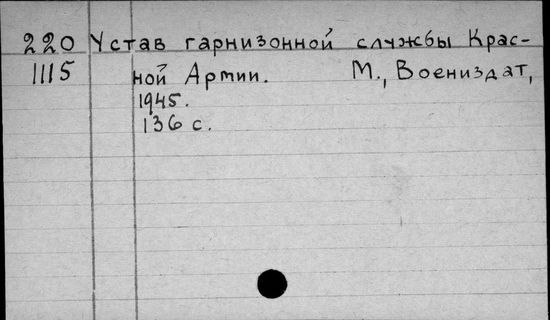 220 Устав гарнизонной службы Крас-
1115 ной Армии. М., Воениздат,
1945.
136 с.